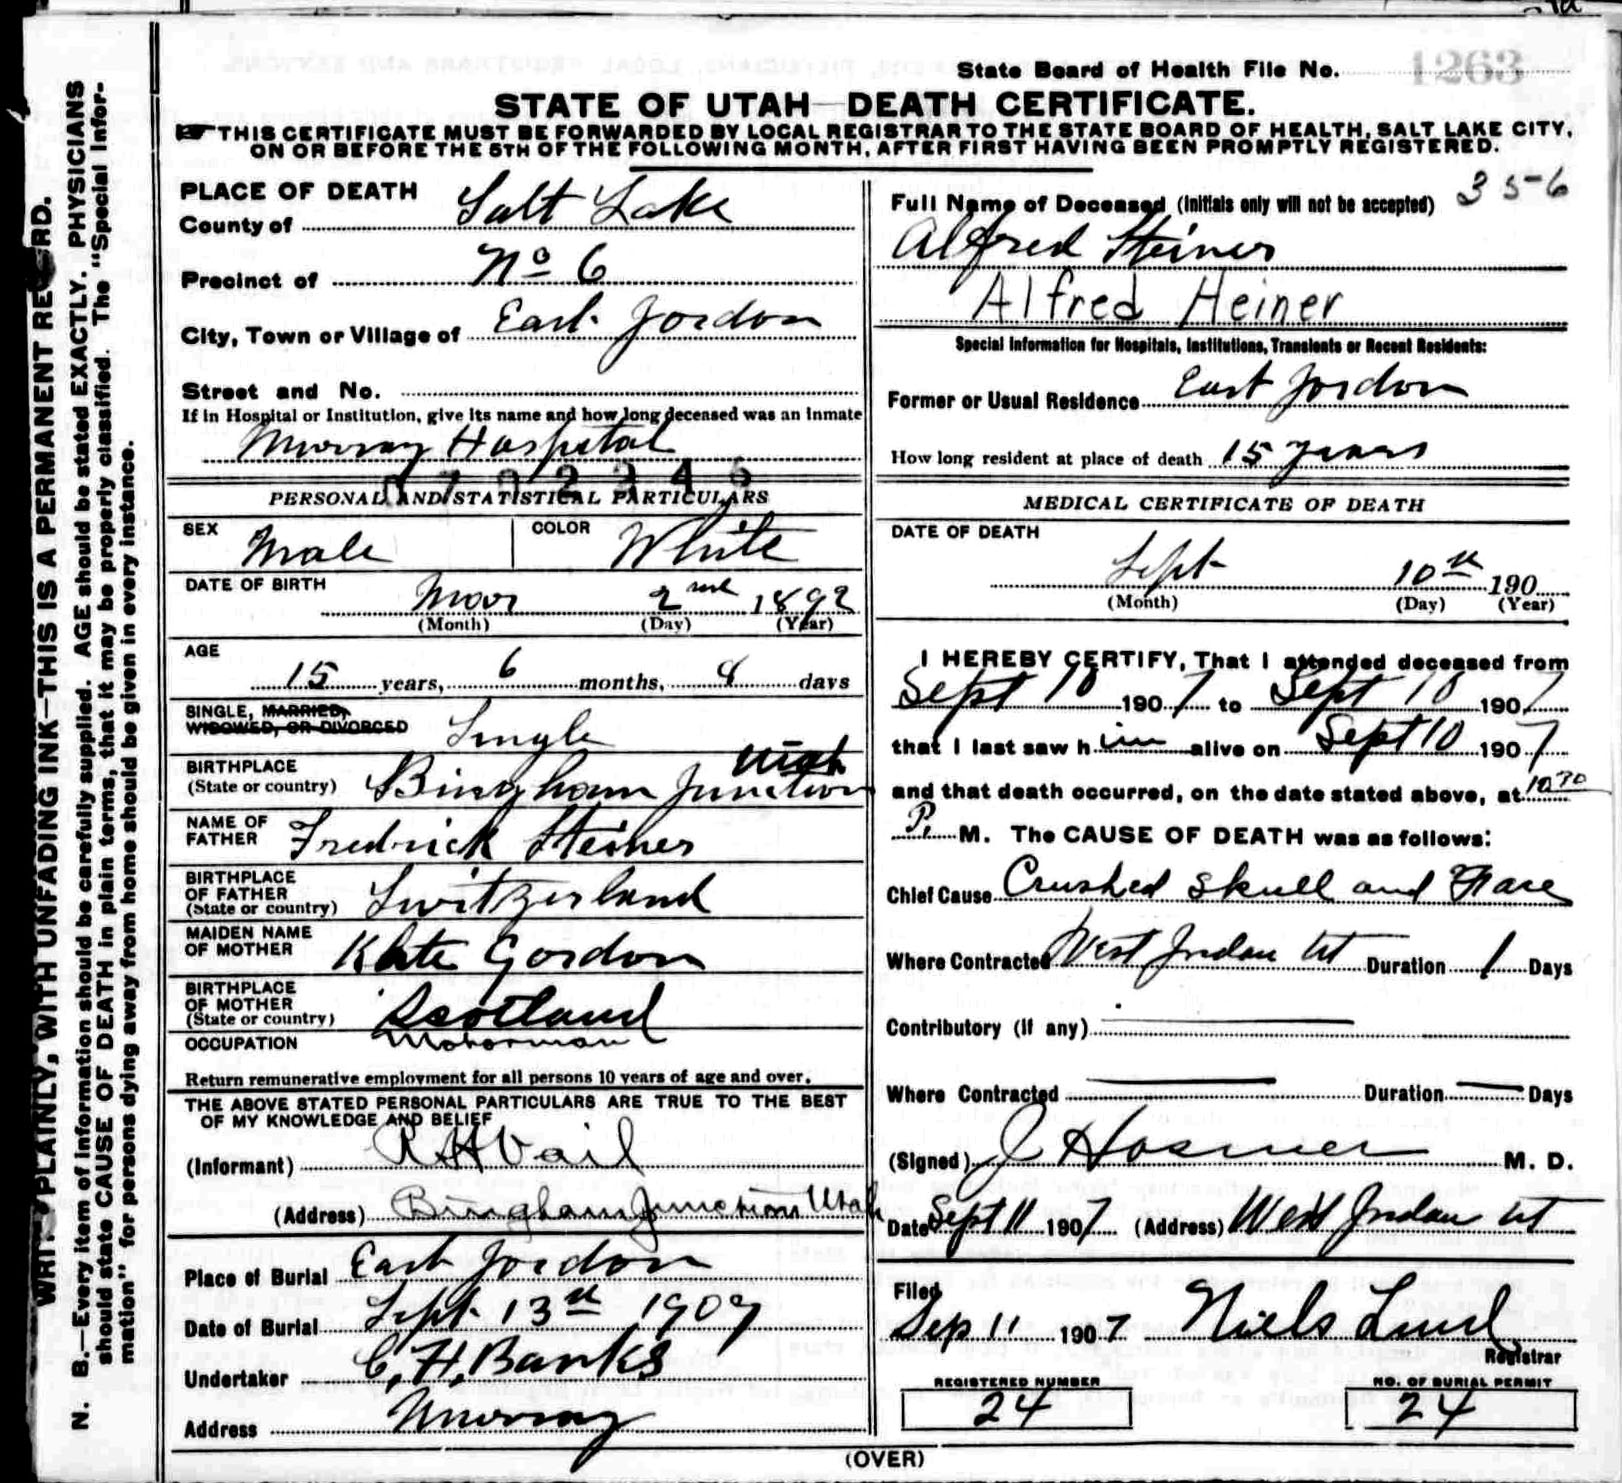 State Board of Health File No. 1263
STATE OF UTAH—DEATH CERTIFICATE.
THIS CERTIFICATE MUST BE FORWARDED BY LOCAL REGISTRAR TO THE STATE BOARD OF HEALTH, SALT LAKE CITY,
ON OR BEFORE THE 5TH OF THE FOLLOWING MONTH, AFTER FIRST HAVING BEEN PROMPTLY REGISTERED.
WRITE PLAINLY, WITH UNFADING INK—THIS IS A PERMANENT RECORD.
N. B.—Every item of information should be carefully supplied. AGE should be stated EXACTLY. PHYSICIANS
should state CAUSE OF DEATH in plain terms, that it may be properly classified. The "Special Infor-
mation" for persons dying away from home should be given in every instance.
PLACE OF DEATH
County of Salt Lake
Precinct of No 6
City, Town or Village of East Jordon
Street and No.
If in Hospital or Institution, give its name and how long deceased was an inmate
Murray Hospital
PERSONAL AND STATISTICAL PARTICULARS
SEX Male COLOR White
DATE OF BIRTH Mar 2nd 1892
(Month) (Day) (Year)
AGE
15 years, 6 months, 8 days
SINGLE, MARRIED,
WIDOWED, OR DIVORCED Single
BIRTHPLACE
(State or country) Bingham Junction Utah
NAME OF
FATHER Fredrick Steiner
BIRTHPLACE
OF FATHER
(State or country) Switzerland
MAIDEN NAME
OF MOTHER Kate Gordon
BIRTHPLACE
OF MOTHER
(State or country) Scotland
OCCUPATION Motorman
Return remunerative employment for all persons 10 years of age and over.
THE ABOVE STATED PERSONAL PARTICULARS ARE TRUE TO THE BEST
OF MY KNOWLEDGE AND BELIEF
(Informant) R H Vail
(Address) Bingham Junction Utah
Place of Burial East Jordon
Date of Burial Sept 13th 1907
Undertaker C. H. Banks
Address Murray
Full Name of Deceased (Initials only will not be accepted) 35-6
Alfred Steiner
Alfred Heiner
Special Information for Hospitals, Institutions, Transients or Recent Residents:
Former or Usual Residence East Jordon
How long resident at place of death 15 years
MEDICAL CERTIFICATE OF DEATH
DATE OF DEATH
Sept 10th 190
(Month) (Day) (Year)
I HEREBY CERTIFY, That I attended deceased from
Sept 10 1907 to Sept 10 1907
that I last saw him alive on Sept 10 1907
and that death occurred, on the date stated above, at 10 30
P. M. The CAUSE OF DEATH was as follows:
Chief Cause Crushed Skull and Face
Where Contracted West Jordan Ut Duration 1 Days
Contributory (if any)
Where Contracted Duration Days
(Signed) J Hosmer M. D.
Date Sept 11 1907 (Address) West Jordan Ut
Filed
Sep 11 1907 Niels Lind
Registrar
REGISTERED NUMBER
24
NO. OF BURIAL PERMIT
24
(OVER)